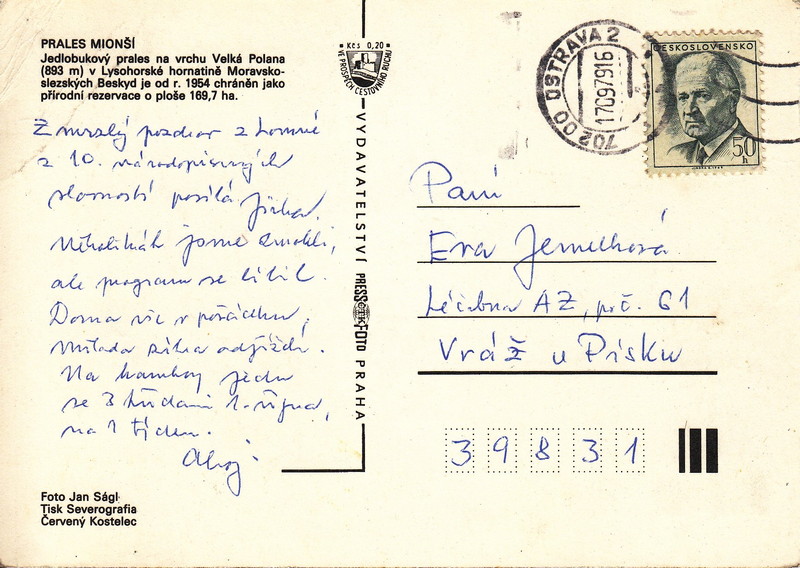 PRALES MIONŠÍ
Jedlobukový prales na vrchu Velká Polana
(893 m) v Lysohorské hornatině Moravsko-
slezských Beskyd je od r. 1954 chráněn jako
přírodní rezervace o ploše 169,7 ha.
Zmrzlý pozdrav z Lomné
z 10. národopisných
slavností posílá Jirka.
Několikrát jsme zmokli,
ale program se líbil.
Doma vše v pořádku,
Milada zítra odjíždí.
Na jedu
se 3 třídami 1. října,
na 1 týden.
Ahoj
Foto Jan Ságl
Tisk Severografia
Červený Kostelec
Kčs 0,20
VE PROSPĚCH CESTOVNÍHO RUCHU
VYDAVATELSTVÍ PRESSFOTO PRAHA
ČTK
70200 OSTRAVA 2
17.09.79.16
ČESKOSLOVENSKO
50 h
Paní
Eva Jemelková
Léčebna AZ, poč. 61
Vráž u Písku
39831